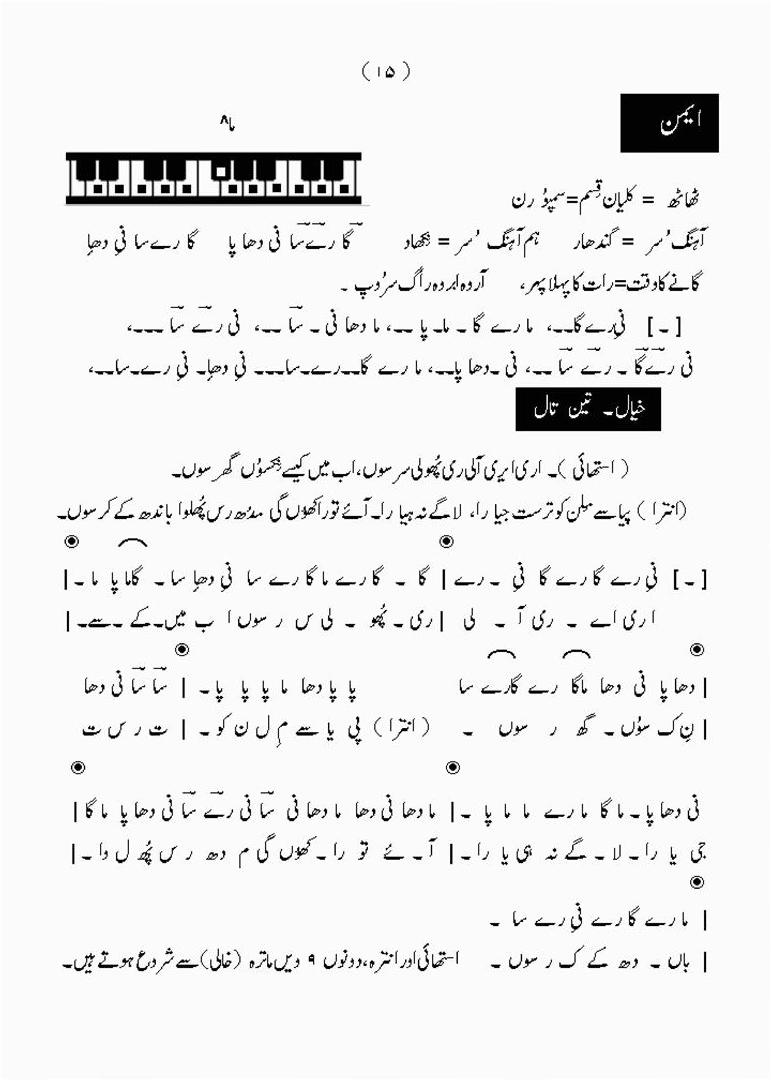 ( ۱۵ )
ایمن
ما۸
ٹھاٹھ = کلیان قسم=سمپوُرن
آہنگ سُر = گندھار ہم آہنگ سُر = نکھاد گا رے سا نی دھا پا گا رے سا نی دھا
گانے کا وقت=رات کا پہلا پہر، آروہ امروہ راگ سرُوپ ۔
[ ۔ ] نی رے گا۔۔، ما رے گا ۔ ما۔ پا ۔۔، ما دھا نی ۔ سا ۔۔، نی رے سا ۔۔۔،
نی رے گا ۔ رے سا ۔۔، نی ۔دھا پا۔۔، ما رے گا۔۔رے۔سا۔۔۔ نی دھا۔ نی رے۔سا۔۔،
خیال۔ تین تال
( استھائی )۔ اری ایری آلی ری پُھولی سرسوں، اب میں کیسے نکسوُں گھر سوں۔
(انترا ) پیا سے مِلن کو ترست جیا را، لاگے نہ ہیا را۔ آئے تو راکھوُں گی مدُھ رس پُھلوا باندھ کے کر سوں۔
[ ۔ ] نی رے گا رے گا نی ۔ رے | گا ۔ گا رے ما گا رے سا نی دھا سا ۔ گاما پا ما ۔ |
ا ری اے ۔ ری آ ۔ لی | ری ۔ پُھو ۔ لی س ر سوں ا ب میں۔کے ۔سے۔ |
| دھا پا نی دھا ماگا رے گارے سا پا پا دھا ما پا پا پا ۔ | سا سا نی دھا
| نِ ک سوُں ۔ گھ ر سوں ۔ ( انترا ) پی یا سے مِ ل ن کو ۔ | ت ر س ت
نی دھا پا ۔ ما گا ما رے ما ما پا ۔ | ما دھا نی دھا ما دھا نی سا نی رے سا نی دھا پا ما گا |
جی یا را ۔ لا ۔ گے نہ ہی یا را ۔ | آ ۔ ئے تو را ۔ کھوُں گی م دھ ر س پُھ ل وا ۔ |
| ما رے گا رے نی رے سا ۔
| باں ۔ دھ کے ک ر سوں ۔ استھائی اور انترہ، دونوں ۹ ویں ماترہ (خالی) سے شروع ہوتے ہیں۔